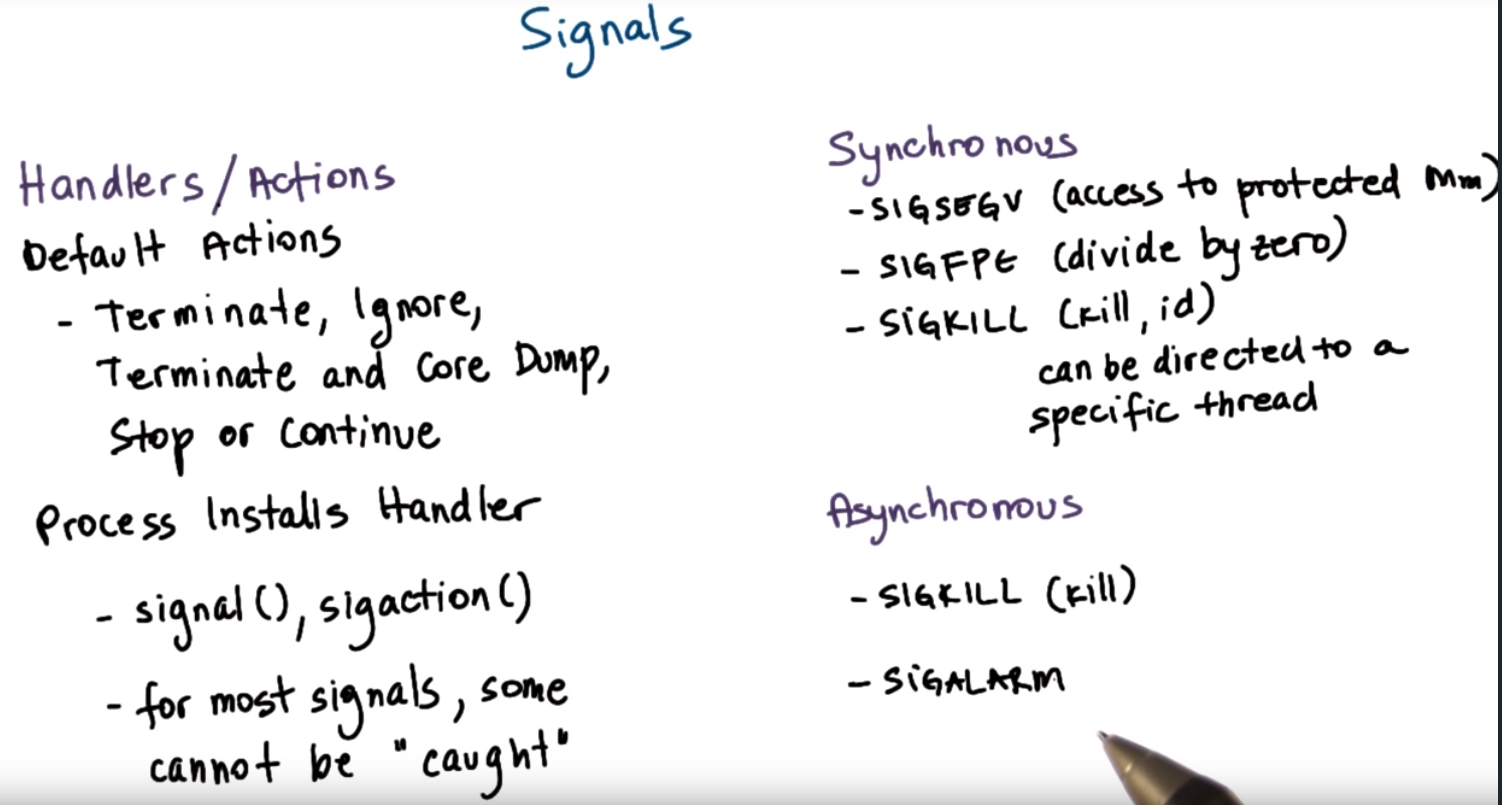 Signals
Handlers/Actions
Default Actions
- Terminate, Ignore,
Terminate and Core Dump,
Stop or Continue
Process Installs Handler
- signal(), sigaction()
- for most signals, some
cannot be "caught"
Synchronous
- SIGSEGV (access to protected Mm)
- SIGFPE (divide by zero)
- SIGKILL (kill, id)
can be directed to a
specific thread
Asynchronous
- SIGKILL (kill)
- SIGALARM